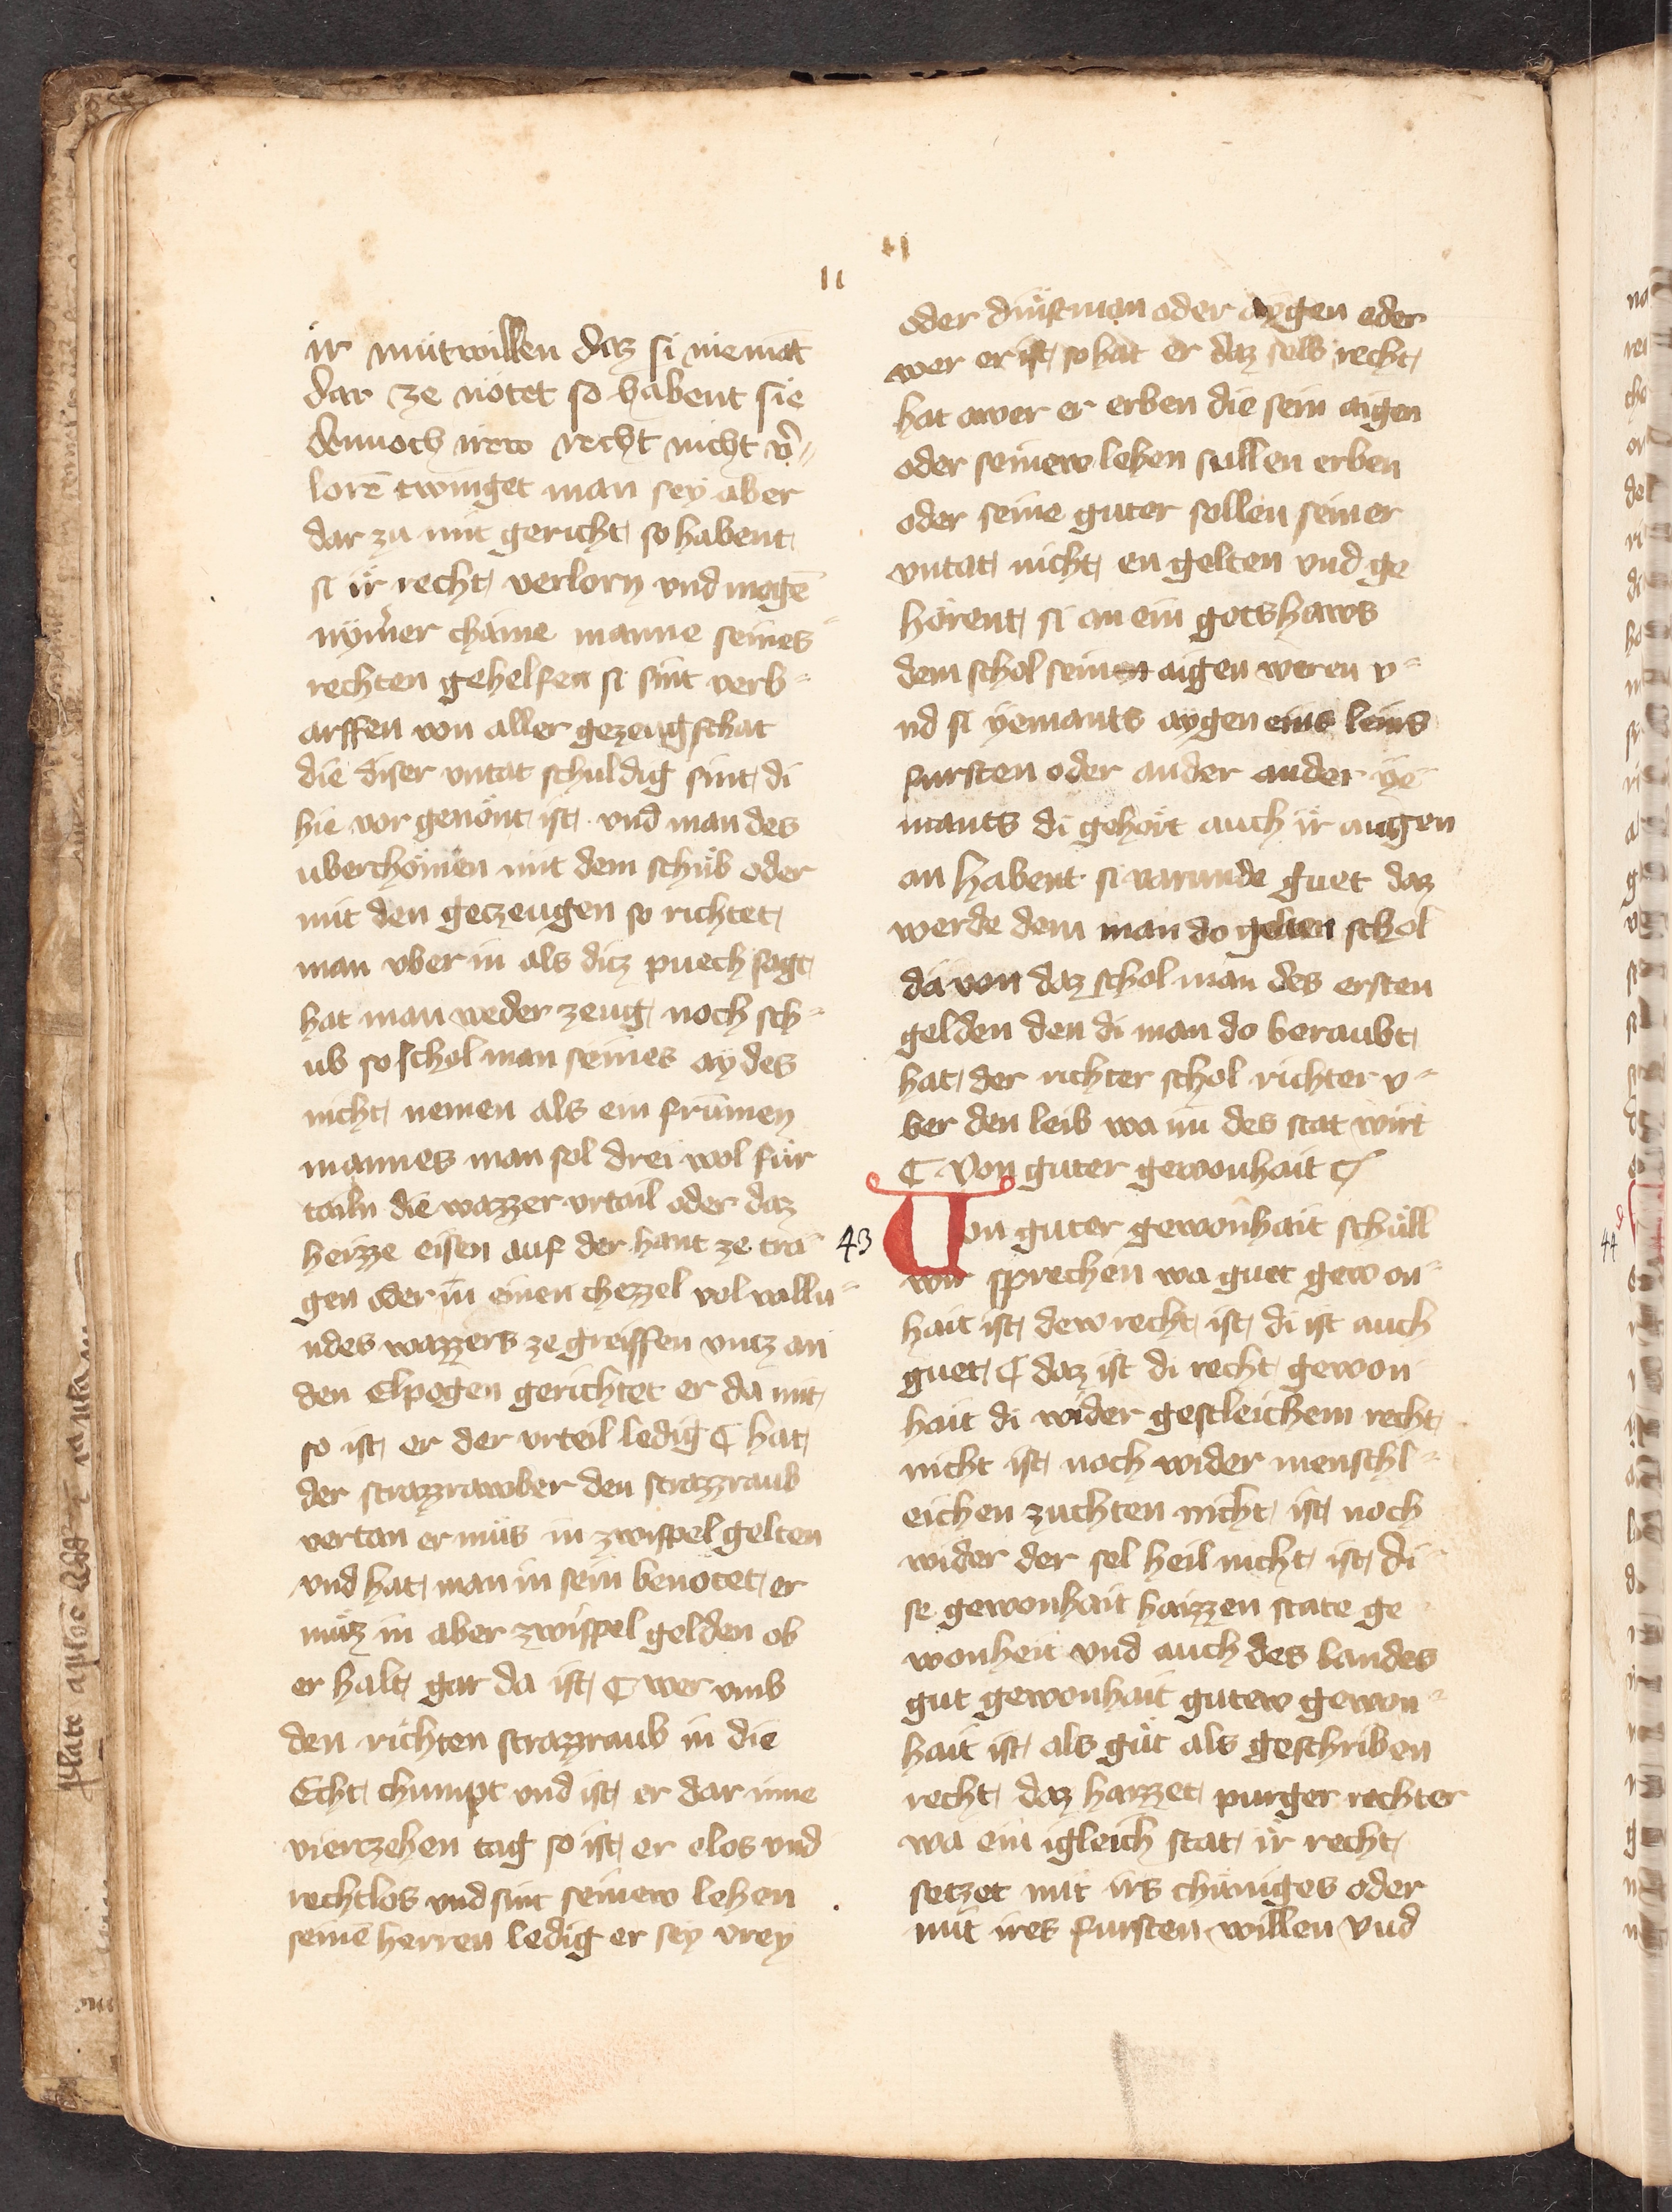 ir mütwillen daz si niemāt
dar ze nötet so habent sie
dennoch irew recht nicht v̄=
lorē twinget man sey aber
dar zu mit gericht so habent
si ir recht verlorn vnd mogē
nym̄er chaine manne seines
rechten gehelfen si sint verb=
arffen von aller gezeugschat
die diser vntat schuldig sint di
hie vor genönt ist vnd man des
uberchömen mit dem schüb oder
mit den geczeugen so richtet
man vber in als ditz puech sagt
hat man weder zeug noch sch=
ub so schol man seines aydes
nicht nemen als ein frümen
mannes man sol drei wol für
tailn die wazzer vrtail oder daz
heizze eisen auf der hant ze tra=
gen oder in einen chezzel vol wallu=
ndes wazzers ze greiffen vntz an
den Elpogen gerichtet er da mit
so ist er der vrteil ledig ¶ hat
der strazzrawber den strazzraub
vertan er müs in zwispel gelten
vnd hat man in sein benötet er
müz in aber zwispel gelden ob
er halt gar da ist ¶ wer vmb
den richten strazzraub in die
Echt chumpt vnd ist er dar inne
viertzehen tag so ist er elos vnd
rechtlos vnd sint seinew lehen
seinē herren ledig er sey vrey
11
oder dinstman oder aygen oder
wer er ist so hat er daz selb recht
hat awer er erben die sein aigen
oder seinew lehen sullen erben
oder seine guter sollen seiner
vntat nicht en gelten vnd ge
hörent si an ein gotshaws
dem schol sein aigen weren v=
nd si yemants aygen eins leins
fursten oder ander ander ye=
mants di gehört auch ir aigen
an habent si varunde guet daz
werde dem man do gelten schol
da von daz schol man des ersten
gelden den di man do beraubt
hat der richter schol richter v=
ber den leib wa im des stat wirt
¶ Von guter gewonhait ¶
43 Von guter gewonhait schüll
wir sprechen wa guet gewon=
hait ist dew recht ist di ist auch
guet ¶ daz ist di recht gewon
hait di wider gestleichem recht
nicht ist noch wider menschl=
eichen zuchten nicht ist noch
wider der sel heil nicht ist di=
se gewonhait haizzen state ge
wonheit vnd auch des landes
gut gewonhait gutew gewon=
hait ist als güt als geschriben
recht daz hazzet purger rechter
wa ein igleich stat ir recht
setzet mit irs chüniges oder
mit ires fursten willen vnd
44